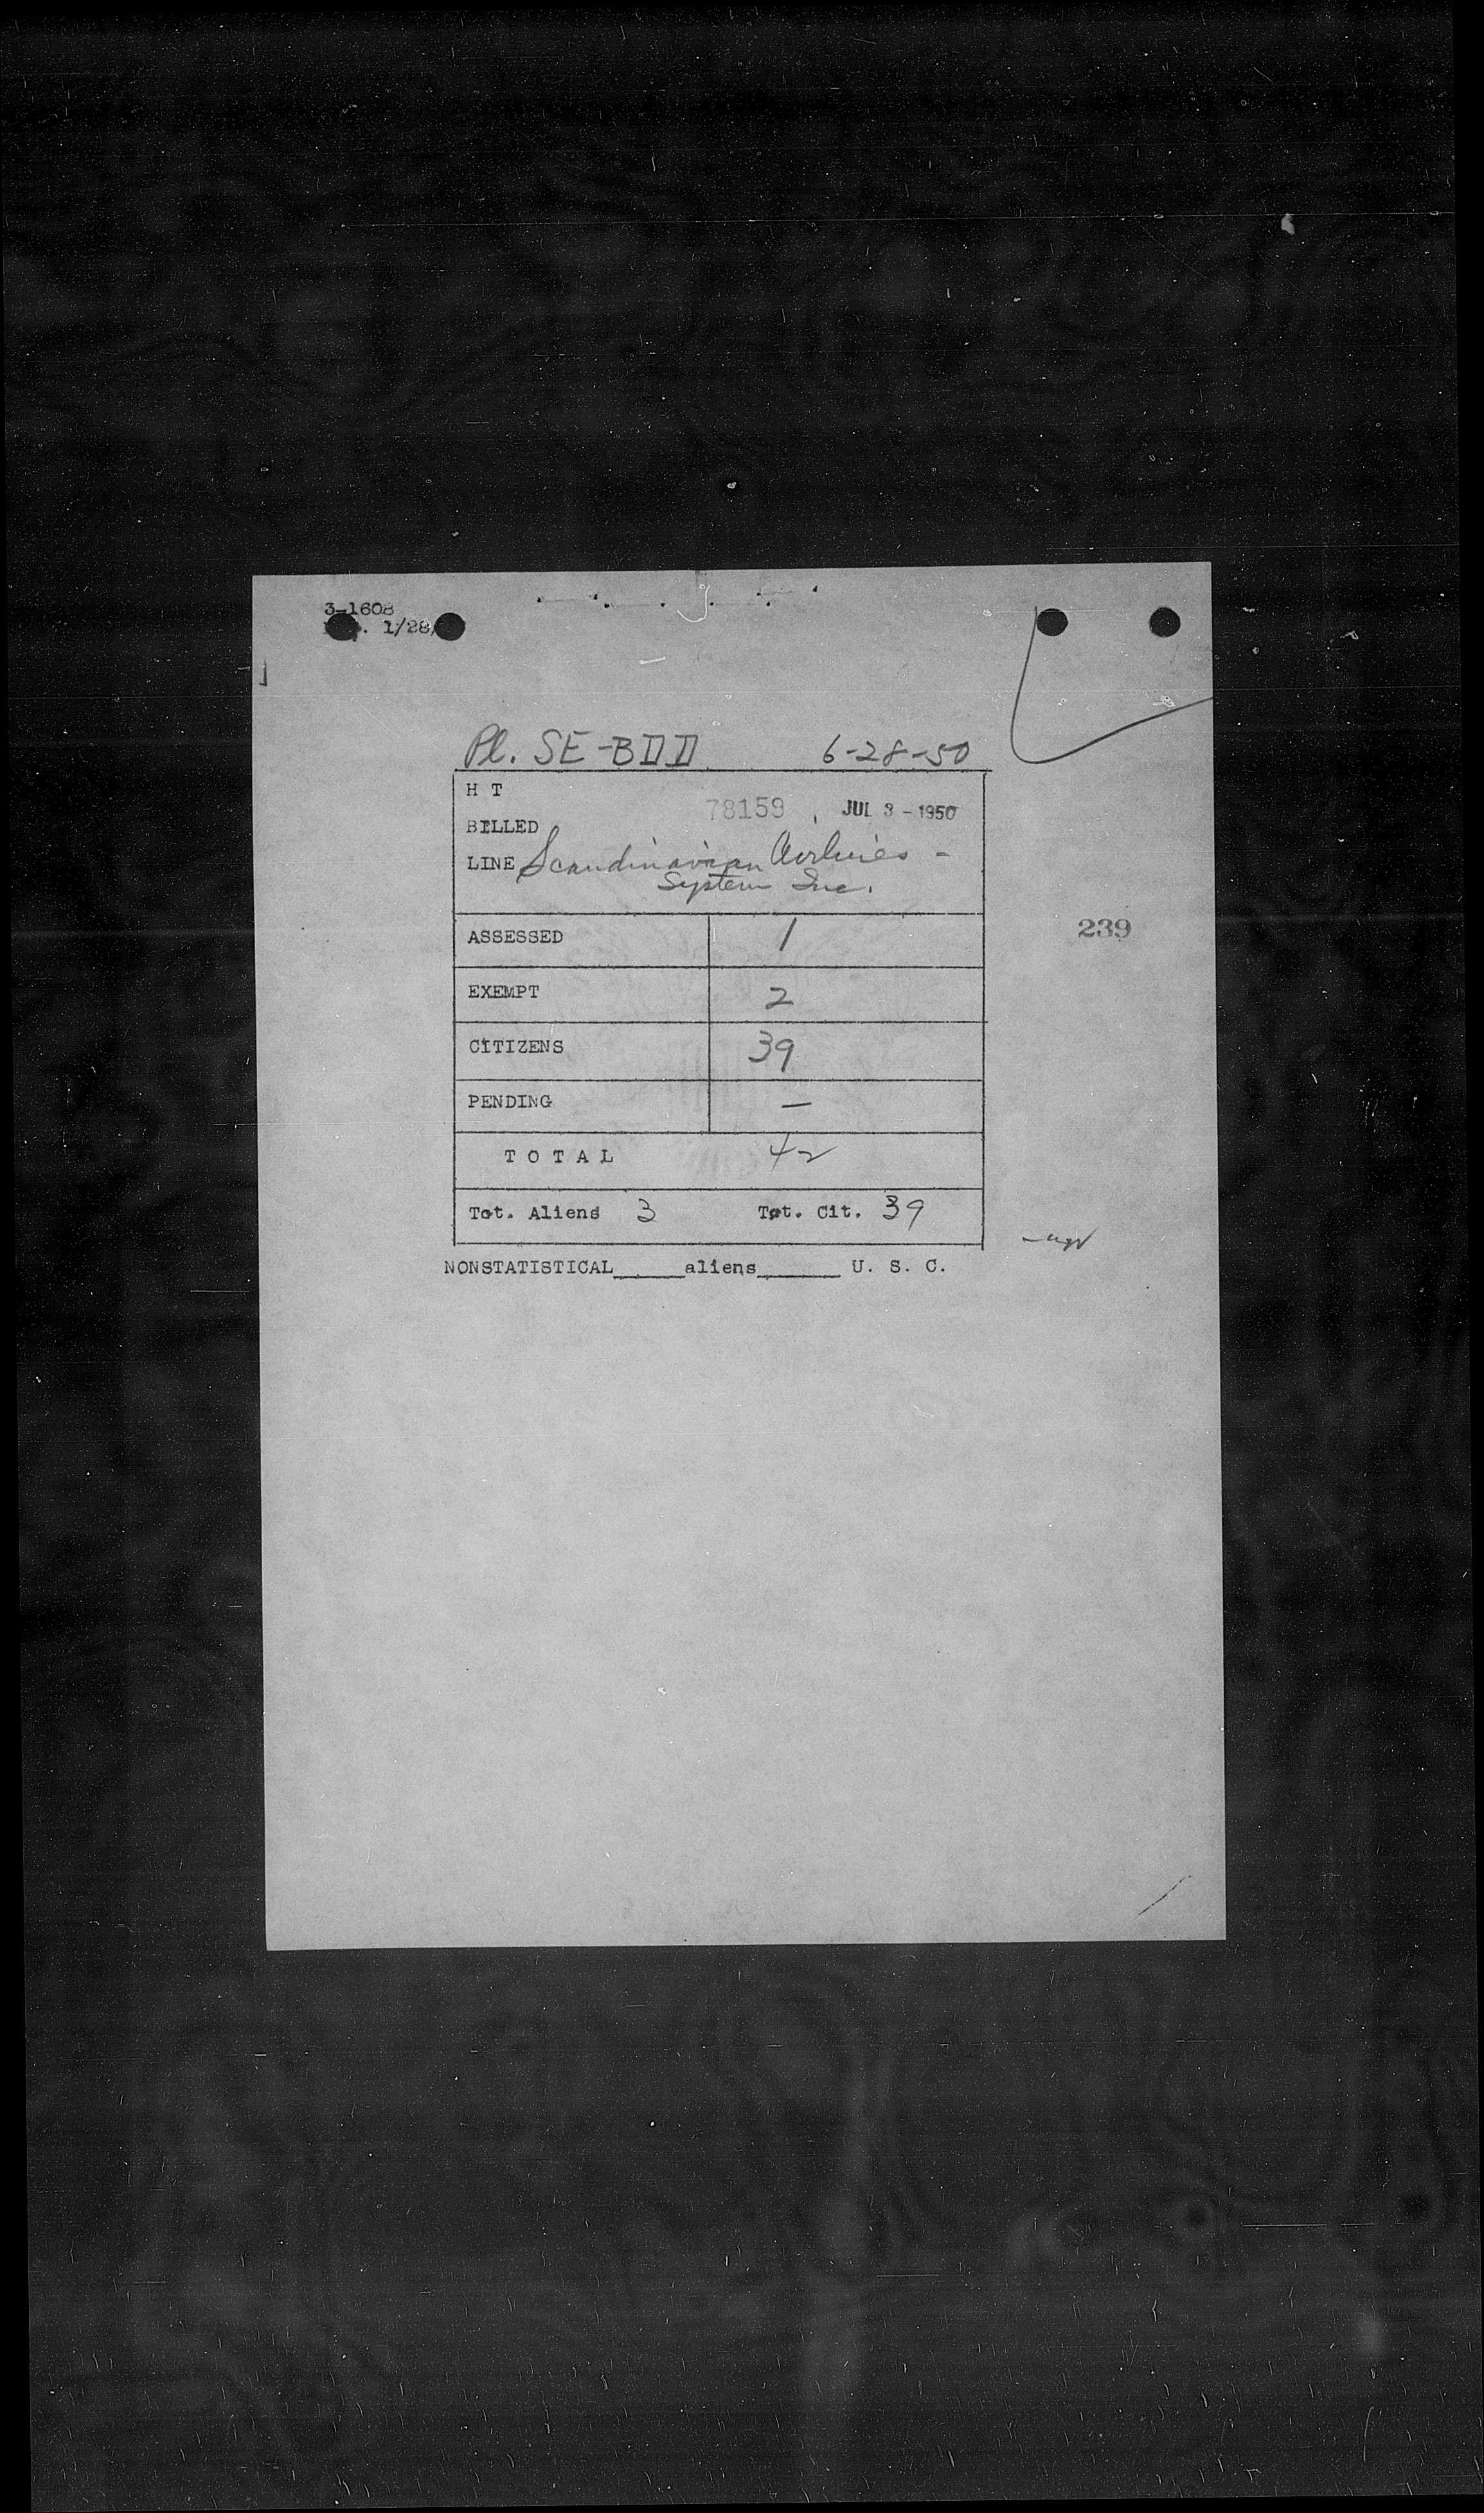 3-1608
1/28/
Pl. SE-BDD 6-28-50
H T
78159 JUL 3-1950
BILLED
LINE Scandinavian Airlines -
System Inc.
ASSESSED 1
239
EXEMPT 2
CITIZENS 39
PENDING —
TOTAL 42
Tot. Aliens 3 Tot. Cit. 39
NONSTATISTICAL_____aliens______ U. S. C.